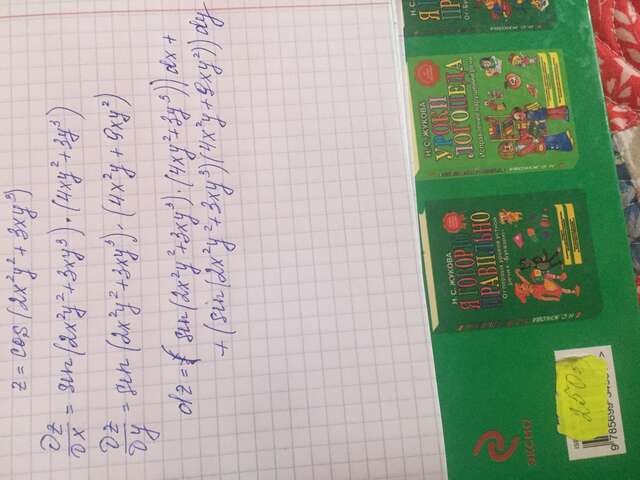 z = cos(2x²y² + 3xy³)
∂z/∂x = sin(2x²y² + 3xy³) · (4xy² + 3y³)
∂z/∂y = sin(2x²y² + 3xy³) · (4x²y + 9xy²)
dz = (sin(2x²y² + 3xy³) · (4xy² + 3y³))dx +
+ (sin(2x²y² + 3xy³)(4x²y + 9xy²))dy
Н.С. ЖУКОВА
УРОКИ
ЛОГОПЕДА
Н.С. ЖУКОВА
Я ГОВОРЮ
ПРАВИЛЬНО
Н.С. ЖУКОВА
ЭКСМО
250
9 785699